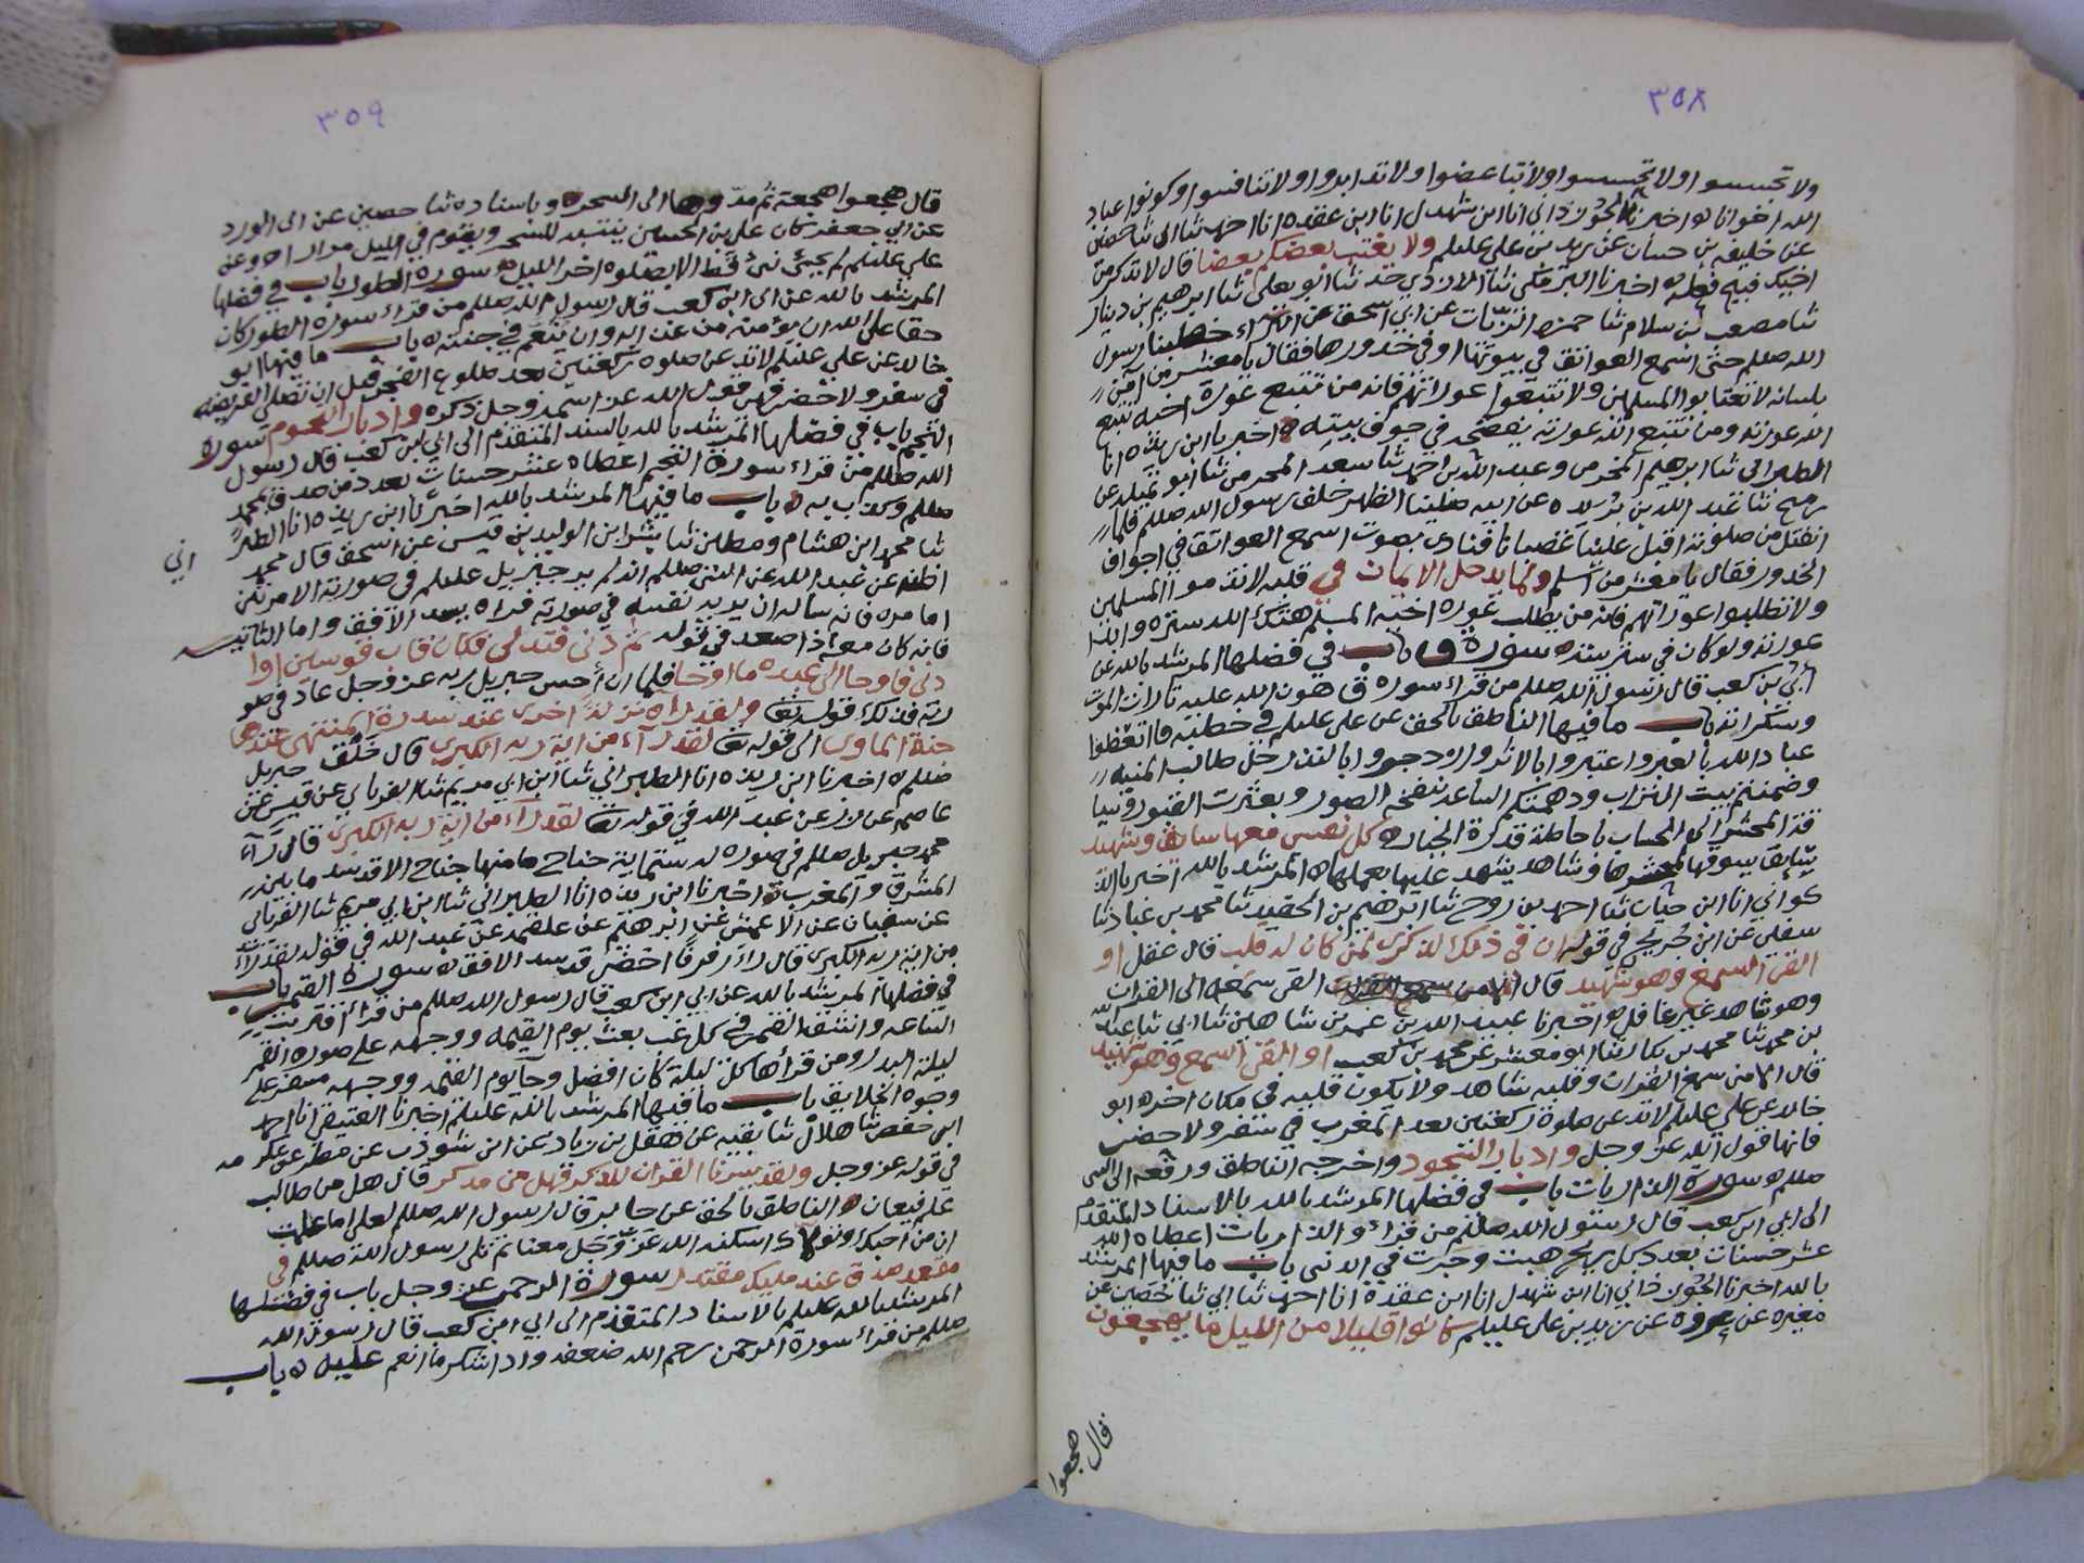 ٣٥٨
ولا تجسسوا ولا تحسسوا ولا تباغضوا ولا تدابروا ولا تنافسوا وكونوا عباد
الله اخوانا ه اخبرنا الجوزداني انا ابن شهدل انا ابن عقده انا احمد ثنا ابي ثنا حصين
عن خليفه بن حسان عن زيد بن علي عليلم ولا يغتب بعضكم بعضا قال لا تذكر من
اخيك فيه فعله ه اخبرنا البرمكي ثنا الازدي ثنا ابو يعلى ثنا ابرهيم بن دينار
ثنا مصعب بن سلام ثنا حمزه الزيات عن ابي اسحق عن البراء خطبنا رسول
الله صللم حتى اسمع العواتق في بيوتها او في خدورها فقال يا معشر من آمن
بلسانه لا تغتابوا المسلمين ولا تتبعوا عوراتهم فانه من تتبع عورة اخيه تتبع
الله عورته ومن تتبع الله عورته يفضحه في جوف بيته ه اخبرنا ابن ريذه انا
الطبراني ثنا ابرهيم المخرمي وعبد الله بن احمد ثنا سعد المخرمي ثنا ابو تميله عن
رميح ثنا عبد الله بن بريده عن ابيه صلينا الظهر خلف رسول الله صللم فلما
انفتل من صلوته اقبل علينا غضبانا فنادى بصوت اسمع العواتق في اجواف
الخدور فقال يا معشر من اسلم ولما يدخل الايمان في قلبه لا تذموا المسلمين
ولا تطلبوا عوراتهم فانه من يطلب عورة اخيه المسلم هتك الله ستره وابدا
عورته ولو كان في ستر بيته ه سورة ق باب في فضلها المرشد بالله عن
ابي بن كعب قال رسول الله صللم من قراء سورة ق هون الله عليه تارات الموت
وسكراته باب ما فيها الناطق بالحق عن علي عليلم في خطبته فاتعظوا
عباد الله بالعبر واعتبروا بالاثر وازدجروا بالنذر
وضمنتم بيت التراب ودهمتكم الساعه بنفخه الصور وبعثرت القبور وسيا
قة المحشر الى الحساب باحاطة قدرة الجبار ه كل نفس معها سايق وشهيد
سايق يسوقها لمحشرها وشاهد يشهد عليها بعملها ه المرشد بالله اخبرنا الذ
كواني انا ابن حيان ثنا احمد بن روح ثنا ابرهيم بن الجنيد ثنا محمد بن عباد ثنا
سفين عن ابن جريج في قوله ان في ذلك لذكرى لمن كان له قلب قال عقل او
القى السمع وهو شهيد قال القى سمعه الى القران
وهو شاهد غير غافل ه اخبرنا عبيد الله بن عمر بن شاهين ثنا ابي ثنا عبد الله
بن محمد ثنا محمد بن بكار ثنا ابو معشر عن محمد بن كعب او القى السمع وهو شهيد
قال من سمع القران وقلبه شاهد ولا يكون قلبه في مكان اخر ه ابو
خالد عن علي عليلم لا تدعن صلوة ركعتين بعد المغرب في سفر ولا حضر
فانها قول الله عز وجل وادبار السجود واخرجه الناطق ورفعه الى النبي
صللم ه سورة الذاريات باب في فضلها المرشد بالله بالاسناد المتقدم
الى ابي ابن كعب قال رسول الله صللم من قراء والذاريات اعطاه الله
عشر حسنات بعدد كل ريح هبت وجرت في الدنيا باب ما فيها المرشد
بالله اخبرنا الجوزداني انا ابن شهدل انا ابن عقده انا احمد ثنا ابي ثنا حصين عن
مغيره عن عروه عن زيد بن علي عليلم كانوا قليلا من الليل ما يهجعون
قال هجعوا
٣٥٩
قال هجعوا هجعة ثم مدوها الى السحر ه وباسناده ثنا حصين عن ابي الورد
عن ابي جعفر كان علي بن الحسين ينتبه للسحر ويقوم في الليل مرارا ه وعنه
علي عليلم لم يجئ نبي قط الا بصلوه اخر الليل ه سورة الطور باب في فضلها
المرشد بالله عن ابي ابن كعب قال رسول الله صللم من قراء سورة الطور كان
حقا على الله ان يؤمنه من عذابه وان ينعمه في جنته ه باب ما فيها ابو
خالد عن علي عليلم لا تدعن صلوة ركعتين بعد طلوع الفجر قبل ان تصلي الفريضه
في سفر ولا حضر فهي قول الله عز اسمه وجل ذكره وادبار النجوم سورة
النجم باب في فضلها المرشد بالله بالسند المتقدم الى ابي بن كعب قال رسول
الله صللم من قراء سورة النجم اعطاه عشر حسنات بعدد من صدق بمحمد
صللم وكذب به ه باب ما فيها المرشد بالله اخبرنا ابن ريذه انا الطبر
اني
ثنا محمد ابن هشام ومطين ثنا بشر ابن الوليد بن قيس عن اسحق قال محمد
اظنه عن عبد الله عن النبي صللم انه لم ير جبريل عليلم في صورته الا مرتين
اما مره فانه ساله ان يريه نفسه في صورته فراه يسد الافق واما الثانيه
فانه كان معه اذ اصعد في قوله ثم دنى فتدلى فكان قاب قوسين او ا
دنى فاوحا الى عبده ما اوحا فلما ان أحس جبريل ربه عز وجل عاد في صو
رته فذلك قوله تعا ولقد راه نزلة اخرى عند سدرة المنتهى عندها
جنة الماوى الى قوله تعا لقد رآء من اية ربه الكبرى قال خلق جبريل
صللم ه اخبرنا ابن ريذه انا الطبراني ثنا ابن ابي مريم ثنا الفريابي عن قيس عن
عاصم عن زر عن عبد الله في قوله تعا لقد رآء من اية ربه الكبرى قال رآء
محمد جبريل صللم في صوره له ستماية جناح ما منها جناح الا قد سد ما بين
المشرق والمغرب ه اخبرنا ابن ريذه انا الطبراني ثنا ابن ابي مريم ثنا الفريابي
عن سفيان عن الاعمش عن ابرهيم عن علقمه عن عبد الله في قوله لقد رآء
من اية ربه الكبرى قال راء رفرفا اخضر قد سد الافق ه سورة القمر باب
في فضلها المرشد بالله عن ابي ابن كعب قال رسول الله صللم من قرأ اقتربت
الساعه وانشق القمر في كل غب بعث يوم القيمه ووجهه على صورة القمر
ليلة البدر ومن قرأها كل ليلة كان افضل وجا يوم القيمه ووجهه مسفر على
وجوه الخلايق باب ما فيها المرشد بالله عليلم اخبرنا العتيقي انا احمد
ابي حفص ثنا هلال ثنا بقيه عن هقل بن زياد عن ابن شوذب عن مطر عن عكرمه
في قوله عز وجل ولقد يسرنا القران للذكر فهل من مدكر قال هل من طالب
علم فيعان ه الناطق بالحق عن جابر قال رسول الله صللم لعلي اما علمت
ان من احبك وتولاك اسكنه الله عز وجل معنا ثم تلى رسول الله صللم في
مقعد صدق عند مليك مقتدر سورة الرحمن عز وجل باب في فضلها
المرشد بالله عليلم بالاسناد المتقدم الى ابي ابن كعب قال رسول الله
صللم من قراء سورة الرحمن رحم الله ضعفه وادا شكر ما انعم عليه ه باب